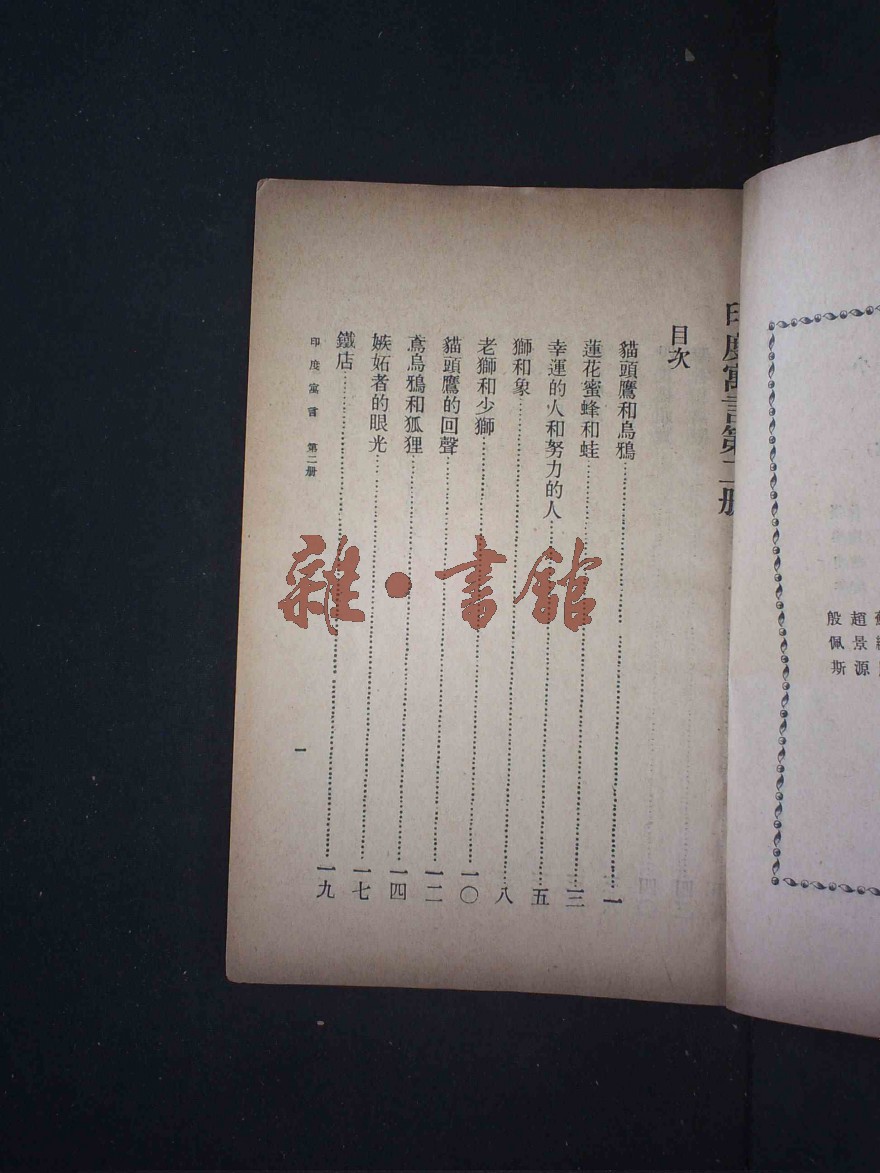 殷佩斯
趙景源
印度寓言第二册
目次
貓頭鷹和烏鴉……一
蓮花蜜蜂和蛙……三
幸運的人和努力的人……五
獅和象……八
老獅和少獅……一〇
貓頭鷹的回聲……一二
鳶烏鴉和狐狸……一四
嫉妬者的眼光……一七
鐵店……一九
印度寓言 第二册
一
雜·書館